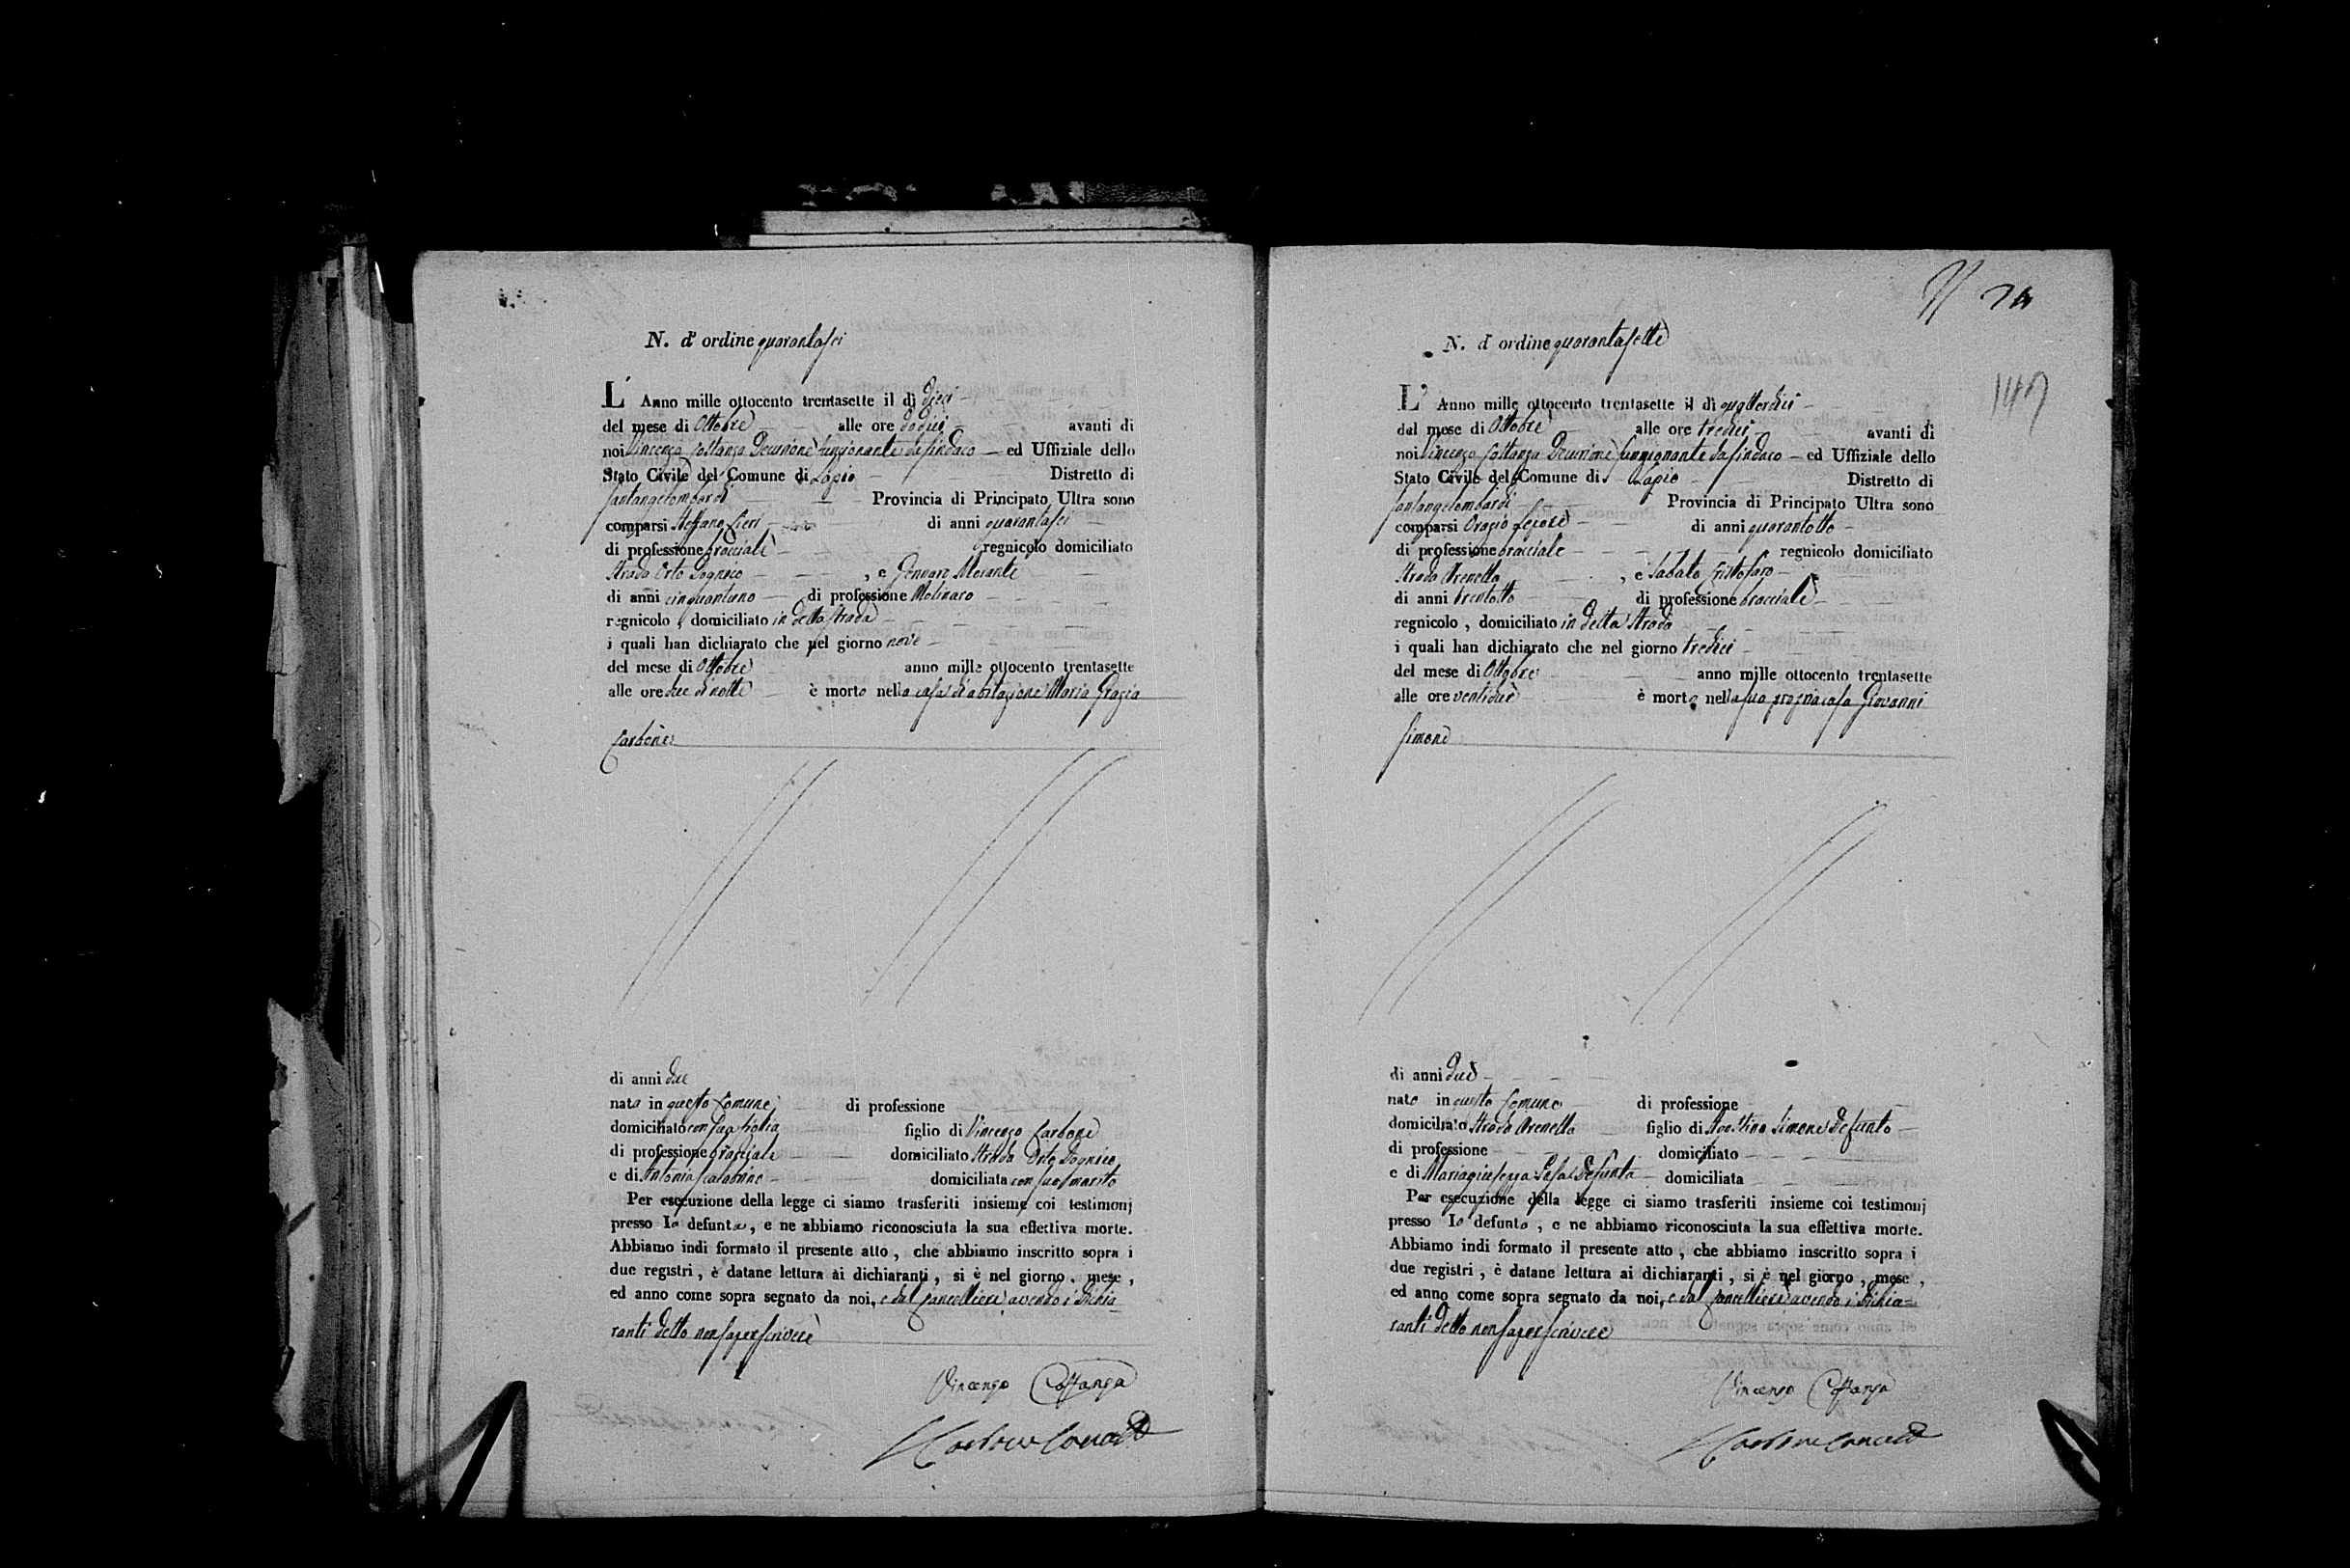 N. d' ordine quarantasei
L' Anno mille ottocento trentasette il dì dieci
del mese di Ottobre alle ore dodici avanti di
noi Vincenzo Costanza Decurione funzionante da Sindaco ed Uffiziale dello
Stato Civile del Comune di Lapio Distretto di
Santangelombardi Provincia di Principato Ultra sono
comparsi Stefano di anni quarantasei
di professione bracciale regnicolo domiciliato
Strada Orto , e Gennaro Morante
di anni cinquantuno di professione Molinaro
regnicolo , domiciliato in detta Strada
i quali han dichiarato che nel giorno nove
del mese di Ottobre anno mille ottocento trentasette
alle ore due di notte è morto nella casa di abitazione Maria Grazia
Carbone
di anni due
nata in questo Comune di professione
domiciliato con sua figlio di Vincenzo Carbone
di professione bracciale domiciliato Strada Orto
e di Antonia domiciliata con suo marito
Per esecuzione della legge ci siamo trasferiti insieme coi testimonj
presso la defunta, e ne abbiamo riconosciuta la sua effettiva morte.
Abbiamo indi formato il presente atto , che abbiamo inscritto sopra i
due registri , è datane lettura ai dichiaranti , si è nel giorno , mese ,
ed anno come sopra segnato da noi, e dal Cancelliere avendo i dichia-
ranti detto non saper scrivere
Vincenzo Costanza
N 74
147
N. d' ordine quarantasette
L' Anno mille ottocento trentasette il dì quattordici
del mese di Ottobre alle ore tredici avanti di
noi Vincenzo Costanza Decurione funzionante da Sindaco ed Uffiziale dello
Stato Civile del Comune di Lapio Distretto di
Santangelombardi Provincia di Principato Ultra sono
comparsi Orazio di anni quarantotto
di professione bracciale regnicolo domiciliato
Strada Arenella , e Sabato Cristofaro
di anni trentotto di professione bracciale
regnicolo , domiciliato in detta Strada
i quali han dichiarato che nel giorno tredici
del mese di Ottobre anno mille ottocento trentasette
alle ore ventidue è morto nella sua propria casa Giovanni
Simone
di anni due
nato in questo Comune di professione
domiciliato Strada Arenella figlio di Agostino Simone defunto
di professione domiciliato
e di Mariagiuseppa defunta domiciliata
Per esecuzione della legge ci siamo trasferiti insieme coi testimonj
presso lo defunto , e ne abbiamo riconosciuta la sua effettiva morte.
Abbiamo indi formato il presente atto , che abbiamo inscritto sopra i
due registri , è datane lettura ai dichiaranti , si è nel giorno , mese ,
ed anno come sopra segnato da noi, e dal Cancelliere avendo i dichia-
ranti detto non saper scrivere
Vincenzo Costanza